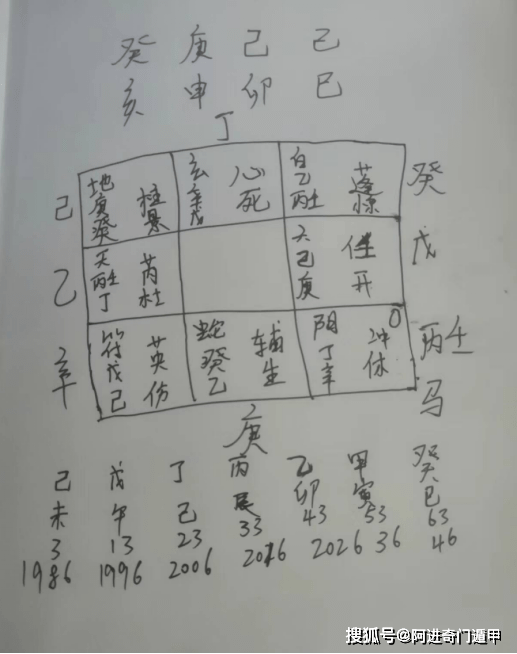 癸 庚 己 己
亥 申 卯 巳
丁
己 地 庚 癸 柱 景 玄 辛 戊 心 死 白 乙 丙壬 蓬 惊 癸
乙 天 丙壬 丁 芮 杜 六 己 庚 任 开 戊
辛 符 戊 己 英 伤 蛇 癸 乙 辅 生 阴 丁 辛 O 冲 休 丙壬
庚 马
己 戊 丁 丙 乙 甲 癸
未 午 巳 辰 卯 寅 丑
3 13 23 33 43 53 63
1986 1996 2006 2016 2026 36 46
搜狐号@阿进奇门遁甲